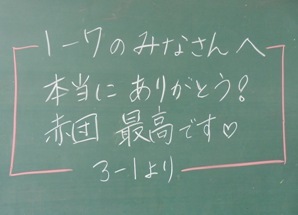 1-7のみなさんへ
本当にありがとう!
赤団 最高です♡
3-1より